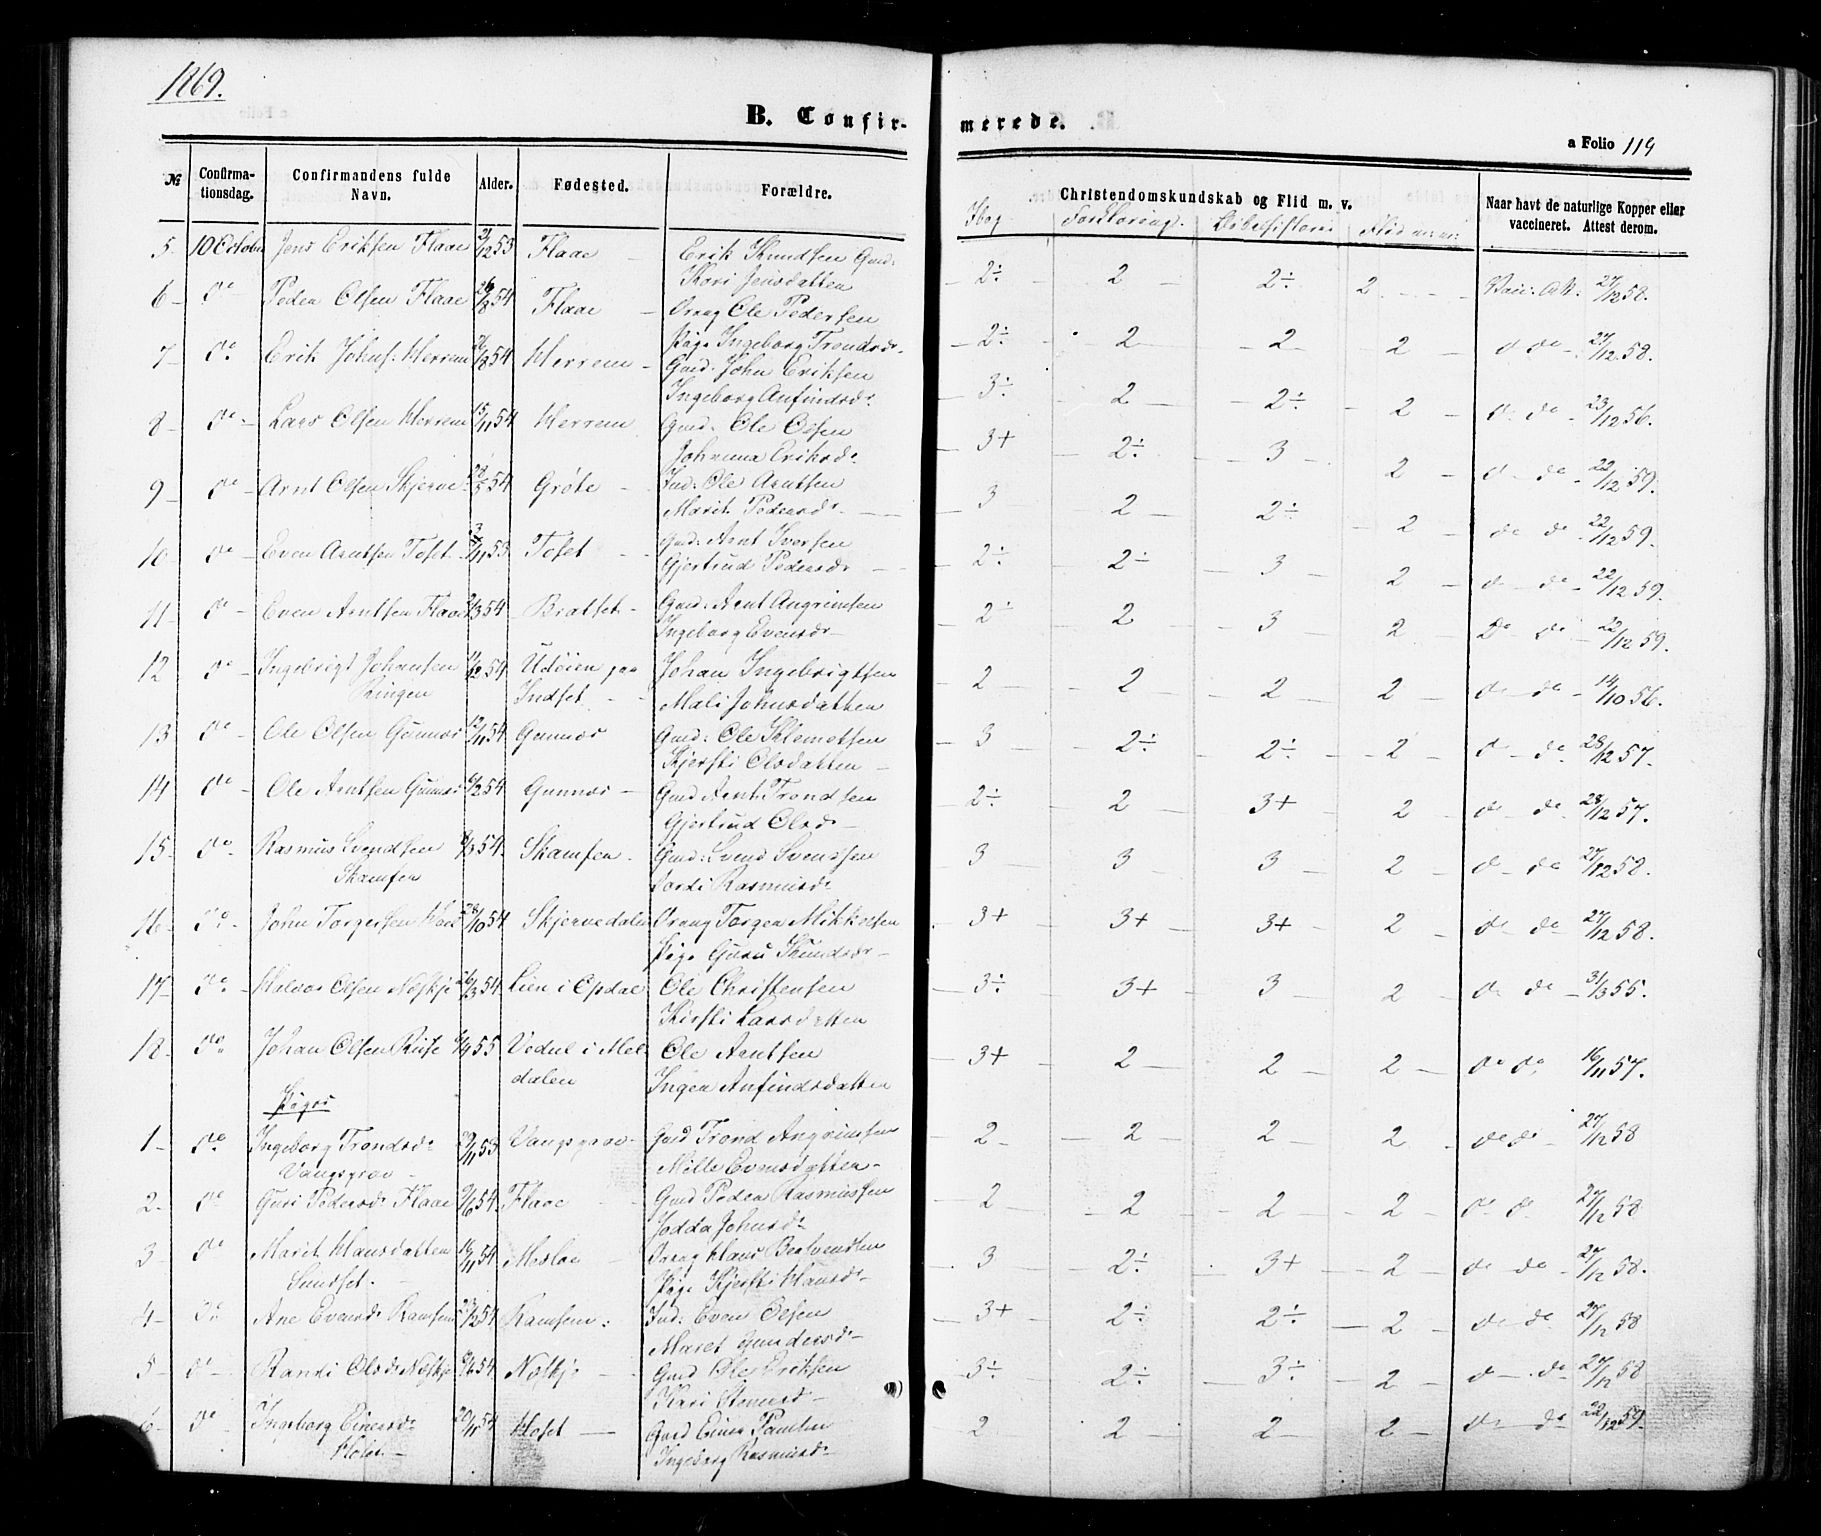 1869.
B. Confir-
merede.
a Folio 119
№ Confirma-tionsdag. Confirmandens fulde Navn. Alder. Fødested. Forældre.
Christendomskundskab og Flid m. v.
Naar havt de naturlige Kopper eller vaccineret. Attest derom.
Forklaring. Bibelhistorie
5 10 October Jens Eriksen Flaae 2/12 53 Flaae Erik Knudsen Gmd: 2÷ 2 2÷ 2 Vacc: Att: 27/12 58.
Kari Jensdatter
6 do Peder Olsen Flaae 26/8 54 Flaae Dreng Ole Pedersen 2÷ 2 2 2 do do 27/12 58.
Pige Ingeborg Trondsdr
7 do Erik Johns: Herrem 26/8 54 Herrem Gmd: John Eriksen 3÷ 2 2÷ 2 do do 23/12 56.
Ingeborg Anfindsdr
8 do Lars Olsen Herrem 15/11 54 Herrem Gmd: Ole Olsen 3+ 2÷ 3 2 do do 22/12 59.
Johanna Eriksdr
9 do Arnt Olsen Skjerve 54 Grøte Ind: Ole Arntsen 3 2 2÷ 2 do do 22/12 59.
Marit Pedersdr
10 do Even Arntsen Toset 3/11 53 Toset Gmd: Arnt Iversen 2÷ 2÷ 3 2 do do 22/12 59.
Gjertrud Pedersdr
11 do Even Arntsen Flaae 2/3 54 Bratset Gmd: Arnt Angrimsen 2÷ 2 3 2 Do do 22/12 59.
Ingeborg Evensdr
12 do Ingebrigt Johansen 54 Udøien paa Johan Ingebrigtsen 2 2 2 2 do do 14/10 56.
Ringen Indset Mali Johnsdatter
13 do Ole Olsen Gunnes 12/11 54 Gunnes Gmd: Ole Klemetsen 3 2÷ 2÷ 2 do do 28/12 57.
Kjersti Olsdatter
14 do Ole Arntsen Gunnes 6/2 54 Gunnes Gmd Arnt Trondsen 2÷ 2 3+ 2 do do 28/12 57.
Gjertrud Olsdr
15 do Rasmus Svendsen 8/3 54 Skamfer Gmd: Svend Svendsen 3 3 3 2 do do 27/12 58.
Skamfer Jordi Rasmusdr
16 do John Torgersen 28/10 54 Skjervedalen Drang Torger Mikkelsen 3+ 3+ 3+ 2 do do 27/12 58.
Pige Guru Knudsdr
17 do Halvor Olsen Neskje 26/3 54 Lien i Opdal Ole Christensen 3÷ 3+ 3 2 do do 31/3 55.
Kirsti Larsdatter
18 do Johan Olsen Rise 6/9 55 Vedul i Mel- Ole Arntsen 3+ 2 2 2 do do 16/11 57.
dalen Inger Anfindsdatter
Piger
1 do Ingeborg Trondsdr 29/11 53 Vangsgrav Gmd Trond Angrimsen 2 2 2 2 do do 27/12 58
Vangsgrav Mille Evensdatter
2 do Guri Pedersdr Flaae 9/6 54 Flaae Gmd Peder Rasmussen 2 2 2 2 do do 27/12 58
Jodda Johnsdr
3 do Marit Hansdatter 16/11 54 Mosloe Drang Hans Bentvendsen 3 2÷ 3+ 2 do do 27/12 58.
Sundset Pige Kjersti Hansdr
4 do Ane Evensdr Ramsem 23/2 54 Ramsem Ind: Even Olsen 3+ 2÷ 2÷ 2 do do 27/12 58
Maret Gundersdr
5 do Randi Olsdr Neskje 8/6 54 Neskje Gmd Ole Eriksen 3÷ 2÷ 3÷ 2 do do 27/12 58
Kari
6 do Ingeborg Einersdr 20/11 54 Hoset Gmd Einer 2 2 2 2 do do 22/12 59.
Hoset Ingeborg Rasmusdr